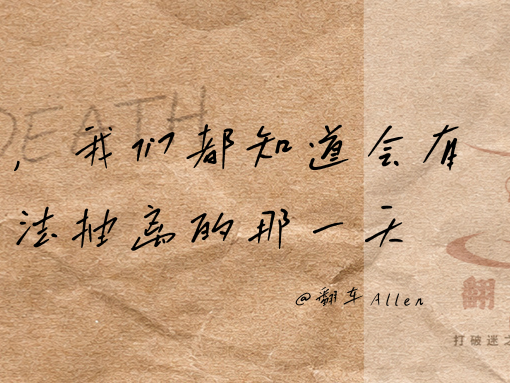 DEATH
，我们都知道会有
法抽离的那一天
@翻车Allen
翻
打破迷之